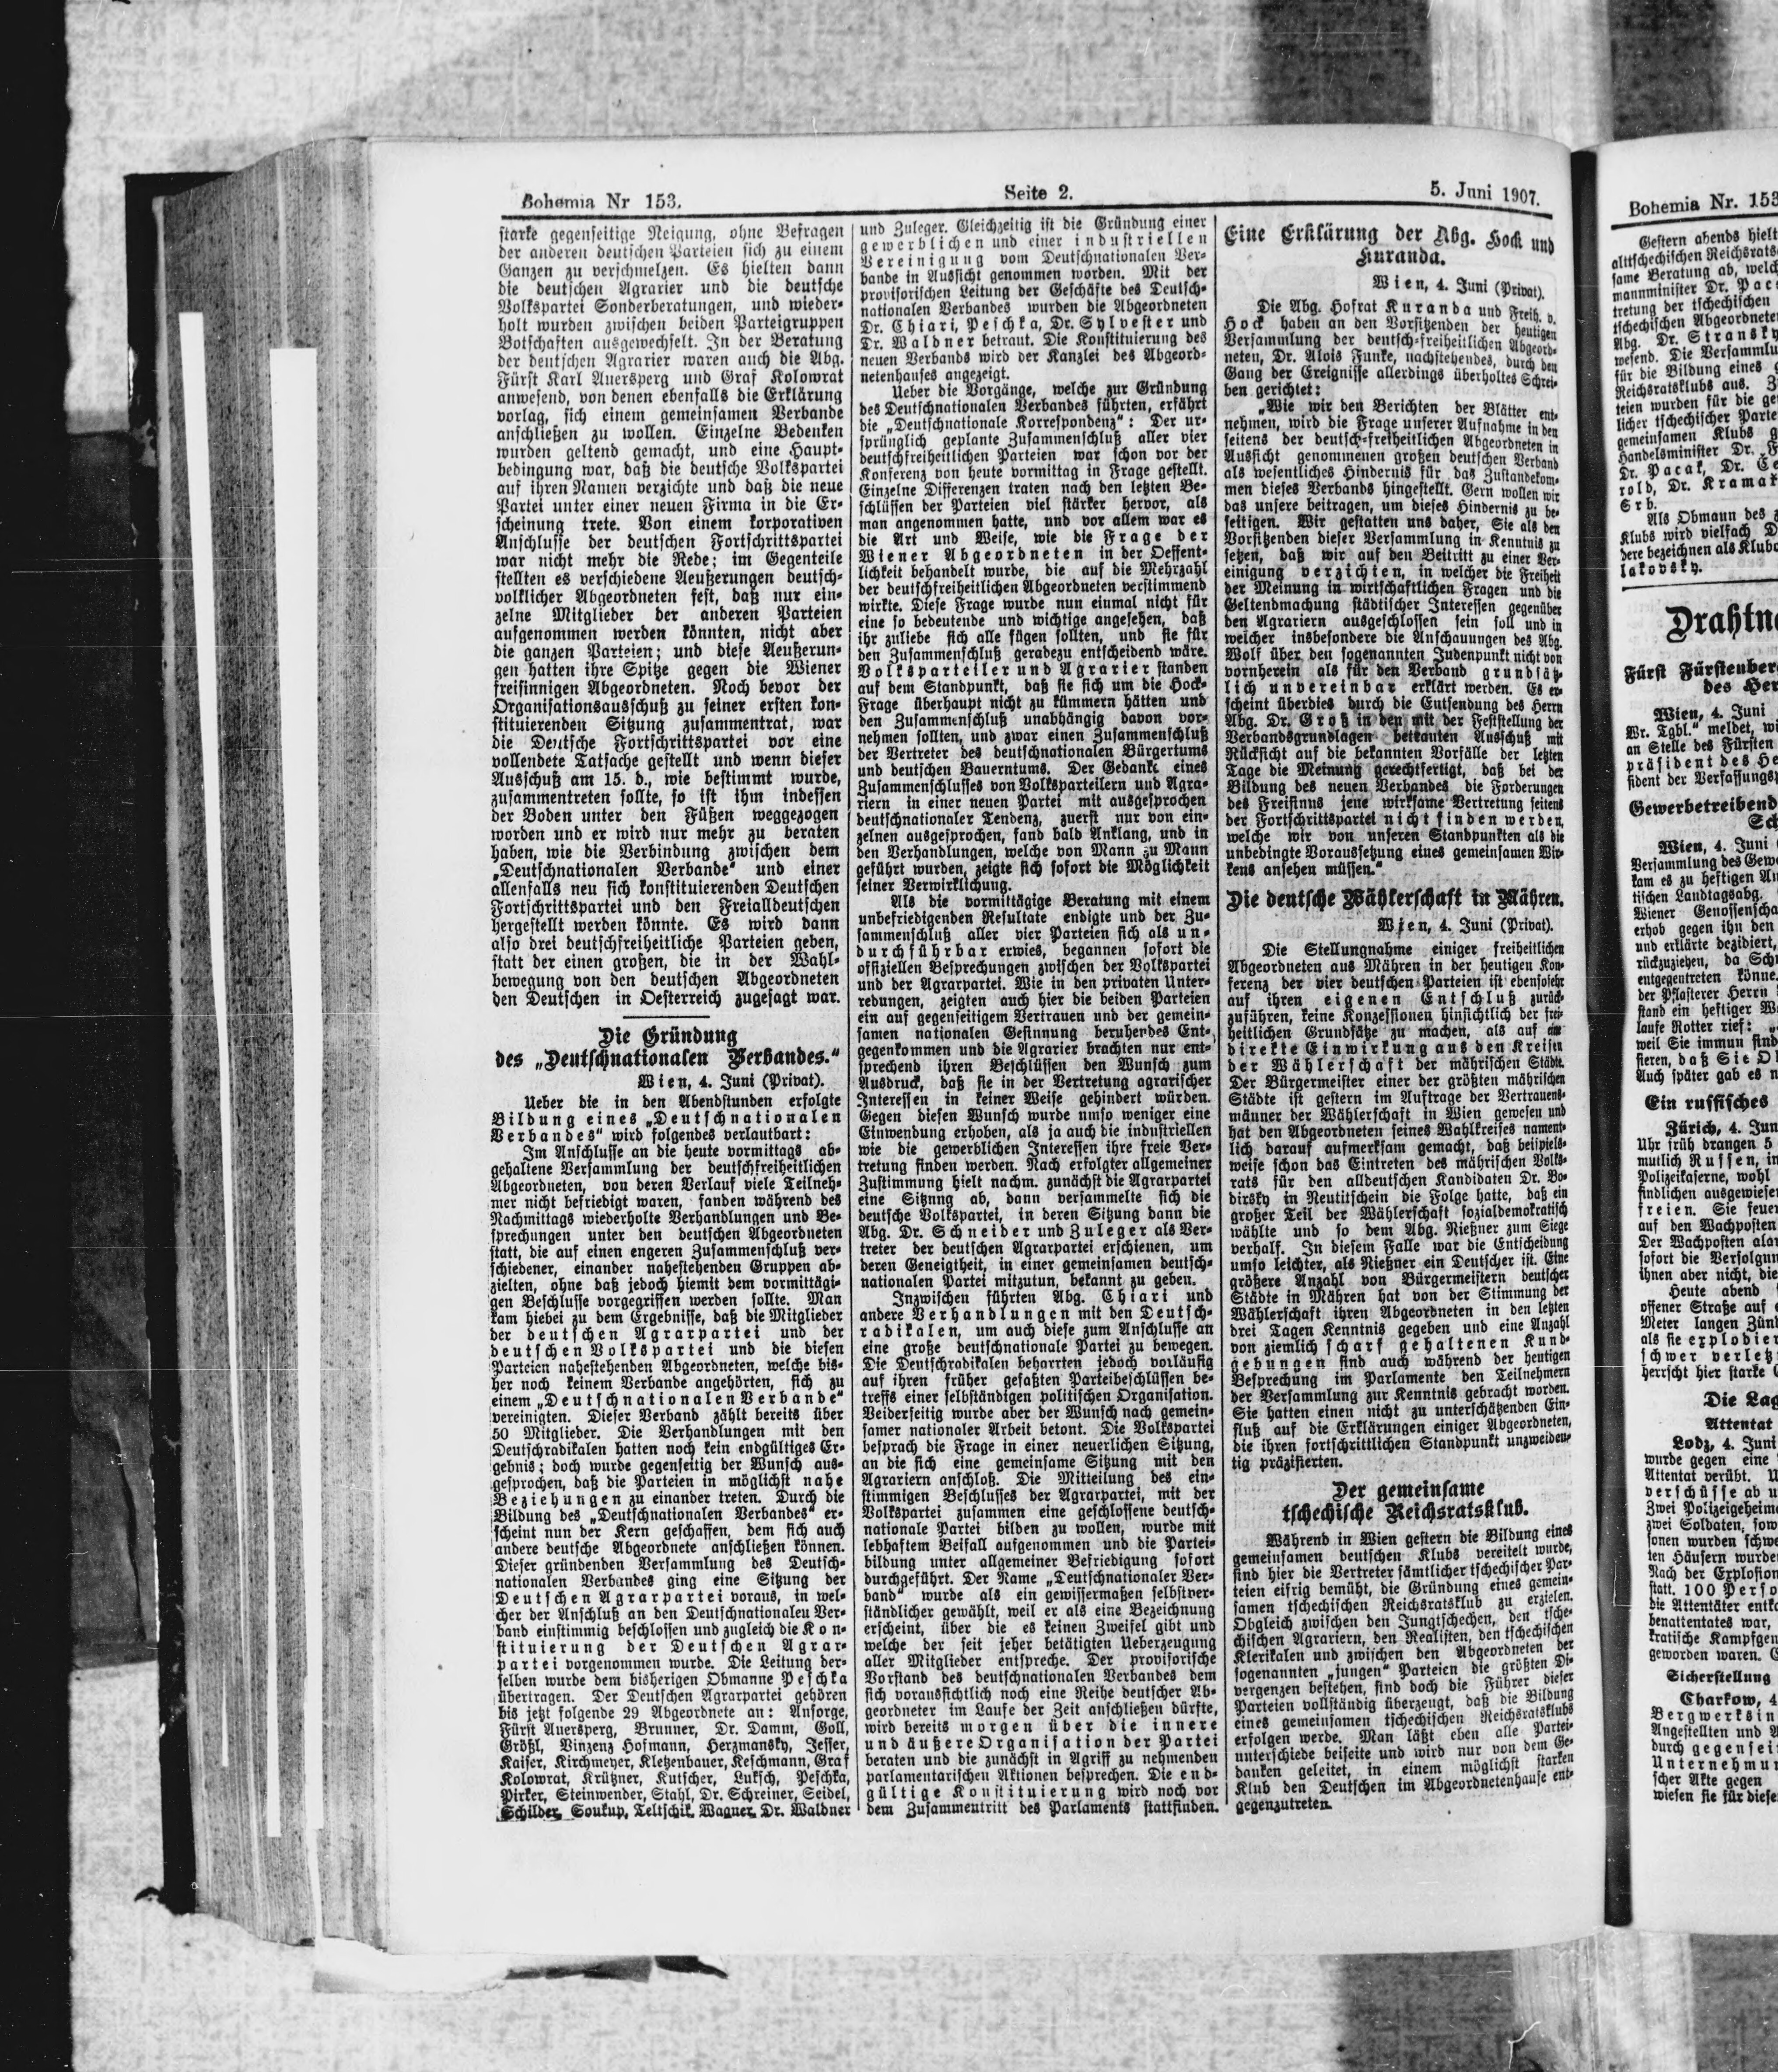 Bohemia Nr 153.
Seite 2.
5. Juni 1907.
starke gegenseitige Neigung, ohne Befragen
der anderen deutschen Parteien sich zu einem
Ganzen zu verschmelzen. Es hielten dann
die deutschen Agrarier und die deutsche
Volkspartei Sonderberatungen, und wieder-
holt wurden zwischen beiden Parteigruppen
Botschaften ausgewechselt. In der Beratung
der deutschen Agrarier waren auch die Abg.
Fürst Karl Auersperg und Graf Kolowrat
anwesend, von denen ebenfalls die Erklärung
vorlag, sich einem gemeinsamen Verbande
anschließen zu wollen. Einzelne Bedenken
wurden geltend gemacht, und eine Haupt-
bedingung war, daß die deutsche Volkspartei
auf ihren Namen verzichte und daß die neue
Partei unter einer neuen Firma in die Er-
scheinung trete. Von einem korporativen
Anschlusse der deutschen Fortschrittspartei
war nicht mehr die Rede; im Gegenteile
stellten es verschiedene Aeußerungen deutsch-
volklicher Abgeordneten fest, daß nur ein-
zelne Mitglieder der anderen Parteien
aufgenommen werden könnten, nicht aber
die ganzen Parteien; und diese Aeußerun-
gen hatten ihre Spitze gegen die Wiener
freisinnigen Abgeordneten. Noch bevor der
Organisationsausschuß zu seiner ersten kon-
stituierenden Sitzung zusammentrat, war
die Deutsche Fortschrittspartei vor eine
vollendete Tatsache gestellt und wenn dieser
Ausschuß am 15. d., wie bestimmt wurde,
zusammentreten sollte, so ist ihm indessen
der Boden unter den Füßen weggezogen
worden und er wird nur mehr zu beraten
haben, wie die Verbindung zwischen dem
„Deutschnationalen Verbande“ und einer
allenfalls neu sich konstituierenden Deutschen
Fortschrittspartei und den Freialldeutschen
hergestellt werden könnte. Es wird dann
also drei deutschfreiheitliche Parteien geben,
statt der einen großen, die in der Wahl-
bewegung von den deutschen Abgeordneten
den Deutschen in Oesterreich zugesagt war.
Die Gründung
des „Deutschnationalen Verbandes.“
Wien, 4. Juni (Privat).
Ueber die in den Abendstunden erfolgte
Bildung eines „Deutschnationalen
Verbandes“ wird folgendes verlautbart:
Im Anschlusse an die heute vormittags ab-
gehaltene Versammlung der deutschfreiheitlichen
Abgeordneten, von deren Verlauf viele Teilneh-
mer nicht befriedigt waren, fanden während des
Nachmittags wiederholte Verhandlungen und Be-
sprechungen unter den deutschen Abgeordneten
statt, die auf einen engeren Zusammenschluß ver-
schiedener, einander nahestehenden Gruppen ab-
zielten, ohne daß jedoch hiemit dem vormittägi-
gen Beschlusse vorgegriffen werden sollte. Man
kam hiebei zu dem Ergebnisse, daß die Mitglieder
der deutschen Agrarpartei und der
deutschen Volkspartei und die diesen
Parteien nahestehenden Abgeordneten, welche bis-
her noch keinem Verbande angehörten, sich zu
einem „Deutschnationalen Verbande“
vereinigten. Dieser Verband zählt bereits über
50 Mitglieder. Die Verhandlungen mit den
Deutschradikalen hatten noch kein endgültiges Er-
gebnis; doch wurde gegenseitig der Wunsch aus-
gesprochen, daß die Parteien in möglichst nahe
Beziehungen zu einander treten. Durch die
Bildung des „Deutschnationalen Verbandes“ er-
scheint nun der Kern geschaffen, dem sich auch
andere deutsche Abgeordnete anschließen können.
Dieser gründenden Versammlung des Deutsch-
nationalen Verbandes ging eine Sitzung der
Deutschen Agrarpartei voraus, in wel-
cher der Anschluß an den Deutschnationalen Ver-
band einstimmig beschlossen und zugleich die Kon-
stituierung der Deutschen Agrar-
partei vorgenommen wurde. Die Leitung der-
selben wurde dem bisherigen Obmanne Peschka
übertragen. Der Deutschen Agrarpartei gehören
bis jetzt folgende 29 Abgeordnete an: Ansorge,
Fürst Auersperg, Brunner, Dr. Damm, Goll,
Größl, Vinzenz Hofmann, Herzmansky, Jesser,
Kaiser, Kirchmeyer, Kletzenbauer, Keschmann, Graf
Kolowrat, Krützner, Kutscher, Luksch, Peschka,
Pirker, Steinwender, Stahl, Dr. Schreiner, Seidel,
Schilder, Soukup, Teltschik, Wagner, Dr. Waldner
und Zuleger. Gleichzeitig ist die Gründung einer
gewerblichen und einer industriellen
Vereinigung vom Deutschnationalen Ver-
bande in Aussicht genommen worden. Mit der
provisorischen Leitung der Geschäfte des Deutsch-
nationalen Verbandes wurden die Abgeordneten
Dr. Chiari, Peschka, Dr. Sylvester und
Dr. Waldner betraut. Die Konstituierung des
neuen Verbands wird der Kanzlei des Abgeord-
netenhauses angezeigt.
Ueber die Vorgänge, welche zur Gründung
des Deutschnationalen Verbandes führten, erfährt
die „Deutschnationale Korrespondenz“: Der ur-
sprünglich geplante Zusammenschluß aller vier
deutschfreiheitlichen Parteien war schon vor der
Konferenz von heute vormittag in Frage gestellt.
Einzelne Differenzen traten nach den letzten Be-
schlüssen der Parteien viel stärker hervor, als
man angenommen hatte, und vor allem war es
die Art und Weise, wie die Frage der
Wiener Abgeordneten in der Oeffent-
lichkeit behandelt wurde, die auf die Mehrzahl
der deutschfreiheitlichen Abgeordneten verstimmend
wirkte. Diese Frage wurde nun einmal nicht für
eine so bedeutende und wichtige angesehen, daß
ihr zuliebe sich alle fügen sollten, und sie für
den Zusammenschluß geradezu entscheidend wäre.
Volksparteiler und Agrarier standen
auf dem Standpunkt, daß sie sich um die Hock-
Frage überhaupt nicht zu kümmern hätten und
den Zusammenschluß unabhängig davon vor-
nehmen sollten, und zwar einen Zusammenschluß
der Vertreter des deutschnationalen Bürgertums
und deutschen Bauerntums. Der Gedanke eines
Zusammenschlusses von Volksparteilern und Agra-
riern in einer neuen Partei mit ausgesprochen
deutschnationaler Tendenz, zuerst nur von ein-
zelnen ausgesprochen, fand bald Anklang, und in
den Verhandlungen, welche von Mann zu Mann
geführt wurden, zeigte sich sofort die Möglichkeit
seiner Verwirklichung.
Als die vormittägige Beratung mit einem
unbefriedigenden Resultate endigte und der Zu-
sammenschluß aller vier Parteien sich als un-
durchführbar erwies, begannen sofort die
offiziellen Besprechungen zwischen der Volkspartei
und der Agrarpartei. Wie in den privaten Unter-
redungen, zeigten auch hier die beiden Parteien
ein auf gegenseitigem Vertrauen und der gemein-
samen nationalen Gesinnung beruhendes Ent-
gegenkommen und die Agrarier brachten nur ent-
sprechend ihren Beschlüssen den Wunsch zum
Ausdruck, daß sie in der Vertretung agrarischer
Interessen in keiner Weise gehindert würden.
Gegen diesen Wunsch wurde umso weniger eine
Einwendung erhoben, als ja auch die industriellen
wie die gewerblichen Interessen ihre freie Ver-
tretung finden werden. Nach erfolgter allgemeiner
Zustimmung hielt nachm. zunächst die Agrarpartei
eine Sitzung ab, dann versammelte sich die
deutsche Volkspartei, in deren Sitzung dann die
Abg. Dr. Schneider und Zuleger als Ver-
treter der deutschen Agrarpartei erschienen, um
deren Geneigtheit, in einer gemeinsamen deutsch-
nationalen Partei mitzutun, bekannt zu geben.
Inzwischen führten Abg. Chiari und
andere Verhandlungen mit den Deutsch-
radikalen, um auch diese zum Anschlusse an
eine große deutschnationale Partei zu bewegen.
Die Deutschradikalen beharrten jedoch vorläufig
auf ihren früher gefaßten Parteibeschlüssen be-
treffs einer selbständigen politischen Organisation.
Beiderseitig wurde aber der Wunsch nach gemein-
samer nationaler Arbeit betont. Die Volkspartei
besprach die Frage in einer neuerlichen Sitzung,
an die sich eine gemeinsame Sitzung mit den
Agrariern anschloß. Die Mitteilung des ein-
stimmigen Beschlusses der Agrarpartei, mit der
Volkspartei zusammen eine geschlossene deutsch-
nationale Partei bilden zu wollen, wurde mit
lebhaftem Beifall aufgenommen und die Partei-
bildung unter allgemeiner Befriedigung sofort
durchgeführt. Der Name „Deutschnationaler Ver-
band“ wurde als ein gewissermaßen selbstver-
ständlicher gewählt, weil er als eine Bezeichnung
erscheint, über die es keinen Zweifel gibt und
welche der seit jeher betätigten Ueberzeugung
aller Mitglieder entspreche. Der provisorische
Vorstand des deutschnationalen Verbandes dem
sich voraussichtlich noch eine Reihe deutscher Ab-
geordneter im Laufe der Zeit anschließen dürfte,
wird bereits morgen über die innere
und äußere Organisation der Partei
beraten und die zunächst in Agriff zu nehmenden
parlamentarischen Aktionen besprechen. Die end-
gültige Konstituierung wird noch vor
dem Zusammentritt des Parlaments stattfinden.
Eine Erklärung der Abg. Hock und
Kuranda.
Wien, 4. Juni (Privat).
Die Abg. Hofrat Kuranda und Freih. v.
Hock haben an den Vorsitzenden der heutigen
Versammlung der deutsch-freiheitlichen Abgeord-
neten, Dr. Alois Funke, nachstehendes, durch den
Gang der Ereignisse allerdings überholtes Schrei-
ben gerichtet:
„Wie wir den Berichten der Blätter ent-
nehmen, wird die Frage unserer Aufnahme in den
seitens der deutsch-freiheitlichen Abgeordneten in
Aussicht genommenen großen deutschen Verband
als wesentliches Hindernis für das Zustandekom-
men dieses Verbands hingestellt. Gern wollen wir
das unsere beitragen, um dieses Hindernis zu be-
seitigen. Wir gestatten uns daher, Sie als den
Vorsitzenden dieser Versammlung in Kenntnis zu
setzen, daß wir auf den Beitritt zu einer Ver-
einigung verzichten, in welcher die Freiheit
der Meinung in wirtschaftlichen Fragen und die
Geltendmachung städtischer Interessen gegenüber
den Agrariern ausgeschlossen sein soll und in
welcher insbesondere die Anschauungen des Abg.
Wolf über den sogenannten Judenpunkt nicht von
vornherein als für den Verband grundsätz-
lich unvereinbar erklärt werden. Es er-
scheint überdies durch die Entsendung des Herrn
Abg. Dr. Groß in den mit der Feststellung der
Verbandsgrundlagen betrauten Ausschuß mit
Rücksicht auf die bekannten Vorfälle der letzten
Tage die Meinung gerechtfertigt, daß bei der
Bildung des neuen Verbandes die Forderungen
des Freisinns jene wirksame Vertretung seitens
der Fortschrittspartei nicht finden werden,
welche wir von unseren Standpunkten als die
unbedingte Voraussetzung eines gemeinsamen Wir-
kens ansehen müssen.“
Die deutsche Wählerschaft in Mähren.
Wien, 4. Juni (Privat).
Die Stellungnahme einiger freiheitlichen
Abgeordneten aus Mähren in der heutigen Kon-
ferenz der vier deutschen Parteien ist ebensosehr
auf ihren eigenen Entschluß zurück-
zuführen, keine Konzessionen hinsichtlich der frei-
heitlichen Grundsätze zu machen, als auf eine
direkte Einwirkung aus den Kreisen
der Wählerschaft der mährischen Städte.
Der Bürgermeister einer der größten mährischen
Städte ist gestern im Auftrage der Vertrauens-
männer der Wählerschaft in Wien gewesen und
hat den Abgeordneten seines Wahlkreises nament-
lich darauf aufmerksam gemacht, daß beispiels-
weise schon das Eintreten des mährischen Volks-
rats für den alldeutschen Kandidaten Dr. Bo-
dirsky in Neutitschein die Folge hatte, daß ein
großer Teil der Wählerschaft sozialdemokratisch
wählte und so dem Abg. Nießner zum Siege
verhalf. In diesem Falle war die Entscheidung
umso leichter, als Nießner ein Deutscher ist. Eine
größere Anzahl von Bürgermeistern deutscher
Städte in Mähren hat von der Stimmung der
Wählerschaft ihren Abgeordneten in den letzten
drei Tagen Kenntnis gegeben und eine Anzahl
von ziemlich scharf gehaltenen Kund-
gebungen sind auch während der heutigen
Besprechung im Parlamente den Teilnehmern
der Versammlung zur Kenntnis gebracht worden.
Sie hatten einen nicht zu unterschätzenden Ein-
fluß auf die Erklärungen einiger Abgeordneten,
die ihren fortschrittlichen Standpunkt unzweideu-
tig präzisierten.
Der gemeinsame
tschechische Reichsratsklub.
Während in Wien gestern die Bildung eines
gemeinsamen deutschen Klubs vereitelt wurde,
sind hier die Vertreter sämtlicher tschechischer Par-
teien eifrig bemüht, die Gründung eines gemein-
samen tschechischen Reichsratsklub zu erzielen.
Obgleich zwischen den Jungtschechen, den tsche-
chischen Agrariern, den Realisten, den tschechischen
Klerikalen und zwischen den Abgeordneten der
sogenannten „jungen“ Parteien die größten Di-
vergenzen bestehen, sind doch die Führer dieser
Parteien vollständig überzeugt, daß die Bildung
eines gemeinsamen tschechischen Reichsratsklubs
erfolgen werde. Man läßt eben alle Partei-
unterschiede beiseite und wird nur von dem Ge-
danken geleitet, in einem möglichst starken
Klub den Deutschen im Abgeordnetenhause ent-
gegenzutreten.
Bohemia Nr. 153
Gestern abends hielt
alttschechischen Reichsrats
same Beratung ab, welch
mannminister Dr. Pac
tretung der tschechischen
tschechischen Abgeordnete
Abg. Dr. Stransky
wesend. Die Versammlu
für die Bildung eines
Reichsratsklubs aus.
teien wurden für die ge
licher tschechischer Parte
gemeinsamen Klubs
Handelsminister Dr. F
Dr. Pacak, Dr. Ce
rold, Dr. Kramar
Srb.
Als Obmann des
Klubs wird vielfach D
dere bezeichnen als Klubo
lakovsky.
Drahtna
Fürst Fürstenber
des Her
Wien, 4. Juni
Wr. Tgbl.“ meldet, wi
an Stelle des Fürsten
präsident des He
sident der Verfassungsp
Gewerbetreibend
Sch
Wien, 4. Juni
Versammlung des Gew
kam es zu heftigen An
tischen Landtagsabg.
Wiener Genossenscha
erhob gegen ihn den
und erklärte dezidiert,
rückzuziehen, da Schn
entgegentreten könne.
der Pflasterer Herrn
stand ein heftiger W
laufe Rotter rief: „
weil Sie immun sind
sieren, daß Sie D
Auch später gab es n
Ein russisches
Zürich, 4. Jun
Uhr früh drangen 5
mutlich Russen, in
Polizeikaserne, wohl
findlichen ausgewiese
freien. Sie feuer
auf den Wachposten
Der Wachposten alar
sofort die Verfolgun
ihnen aber nicht, die
Heute abend
offener Straße auf
Meter langen Zünd
als sie explodier
schwer verletz
herrscht hier starke
Die Lag
Attentat
Lodz, 4. Juni
wurde gegen eine
Attentat verübt. U
verschüsse ab u
Zwei Polizeigeheim
zwei Soldaten, sow
sonen wurden schwe
ten Häusern wurde
Nach der Explosion
statt. 100 Perso
die Attentäter entko
benattentates war,
kratische Kampfgen
geworden waren.
Sicherstellung
Charkow, 4
Bergwerksin
Angestellten und A
durch gegensei
Unternehmun
scher Akte gegen
wiesen sie für diese